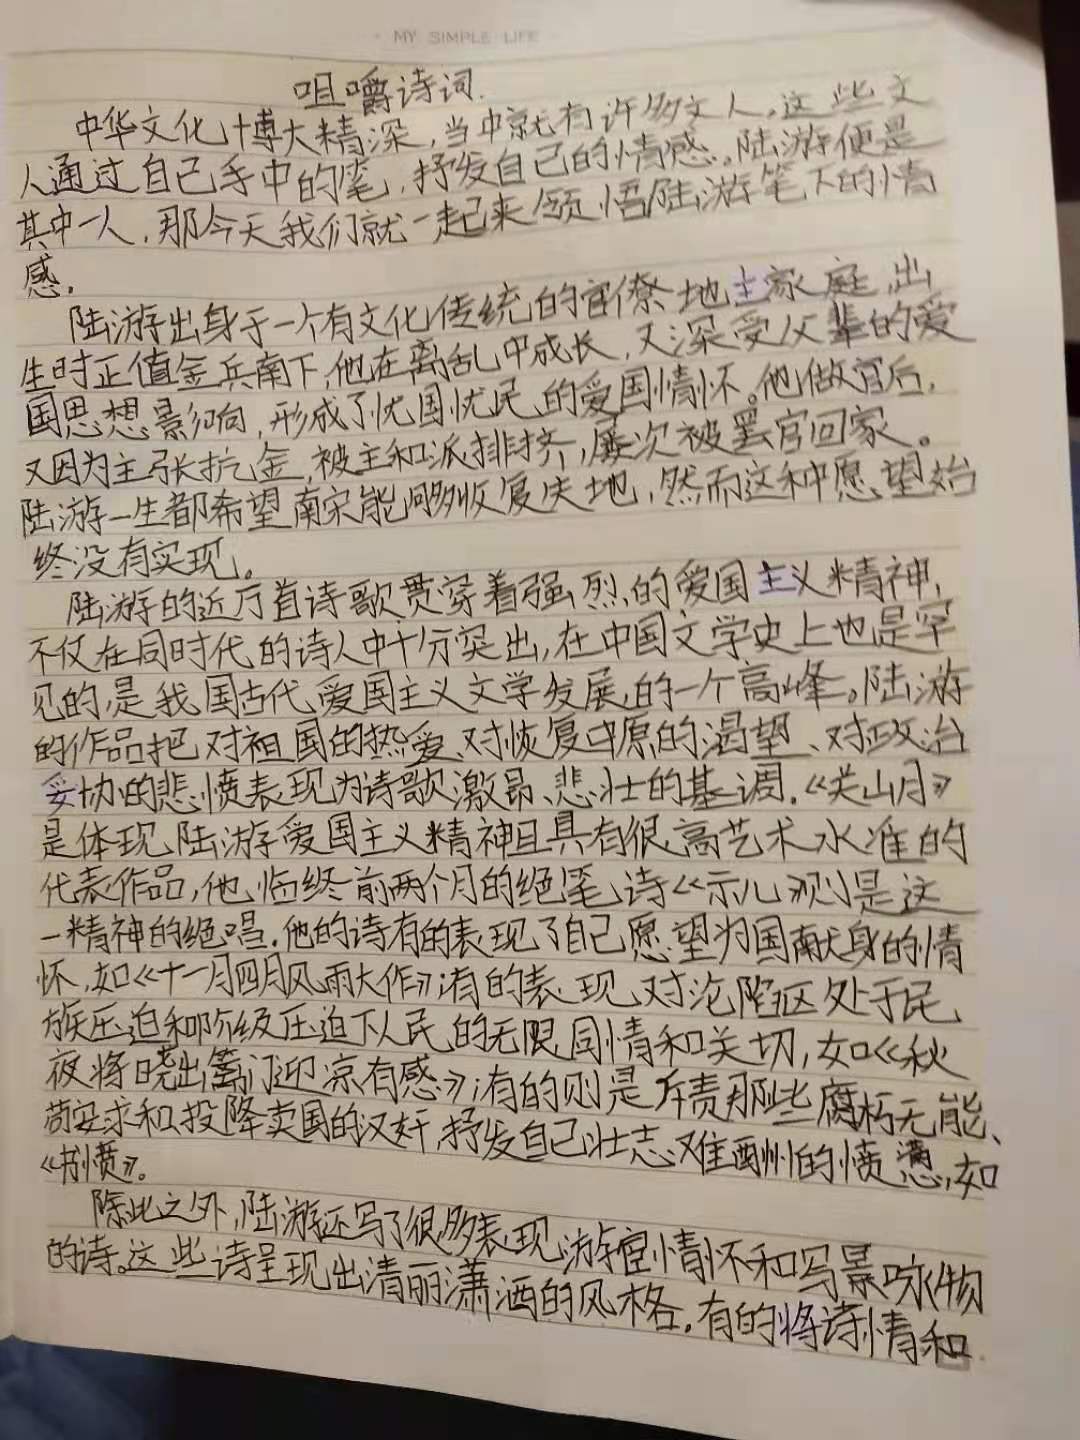 MY SIMPLE LIFE
咀嚼诗词.
中华文化博大精深,当中就有许多文人。这些文
人通过自己手中的笔,抒发自己的情感。陆游便是
其中一人,那今天我们就一起来领悟陆游笔下的情
感.
陆游出身于一个有文化传统的官僚地主家庭,出
生时正值金兵南下,他在离乱中成长,又深受父辈的爱
国思想影响,形成了忧国忧民的爱国情怀。他做官后,
又因为主张抗金,被主和派排挤,屡次被罢官回家。
陆游一生都希望南宋能够收复失地,然而这种愿望始
终没有实现。
陆游的近万首诗歌贯穿着强烈的爱国主义精神,
不仅在同时代的诗人中十分突出,在中国文学史上也是罕
见的,是我国古代爱国主义文学发展的一个高峰。陆游
的作品把对祖国的热爱、对恢复中原的渴望、对政治
妥协的悲愤表现为诗歌激昂、悲壮的基调.《关山月》
是体现陆游爱国主义精神且具有很高艺术水准的
代表作品,他临终前两个月的绝笔诗《示儿》则是这
一精神的绝唱.他的诗有的表现了自己愿望为国献身的情
怀,如《十一月四月风雨大作》;有的表现对沦陷区处于民
族压迫和阶级压迫下人民的无限同情和关切,如《秋
夜将晓出篱门迎凉有感》;有的则是斥责那些腐朽无能、
苟安求和、投降卖国的汉奸,抒发自己壮志难酬的愤懑,如
《书愤》。
除此之外,陆游还写了很多表现游宦情怀和写景咏物
的诗。这些诗呈现出清丽潇洒的风格.有的将诗情和